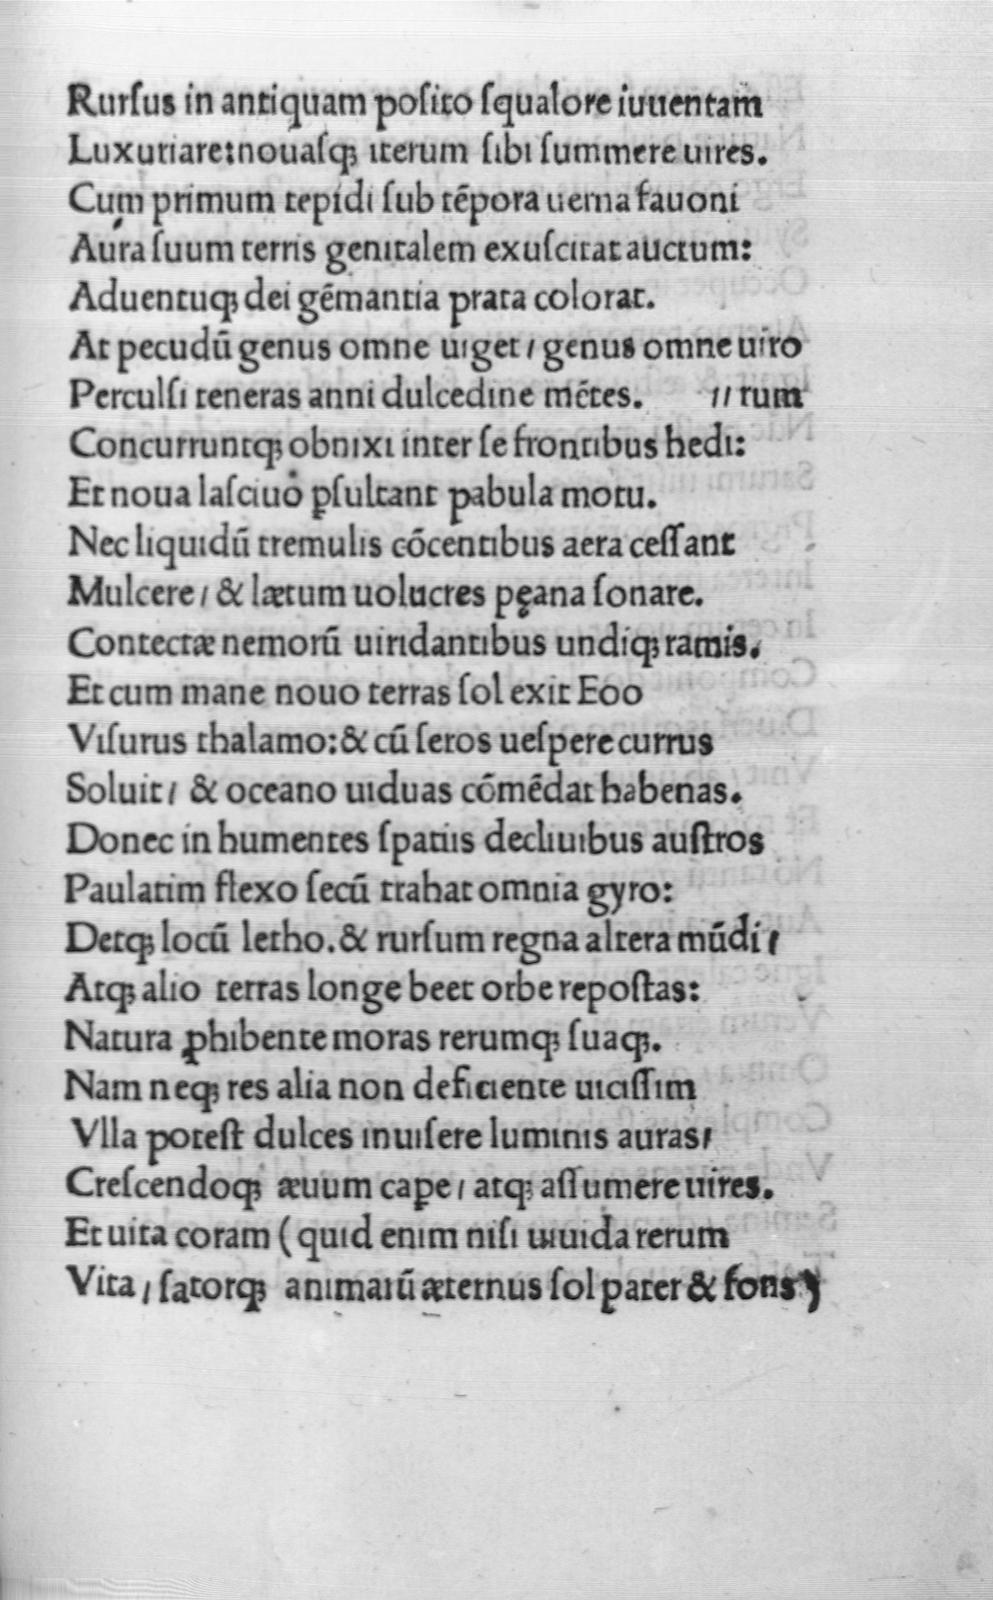 Rurſus in antiquam poſito ſqualore iuuentam
Luxuriare:nouaſqꝫ iterum ſibi ſummere uires.
Cum primum tepidi ſub tēpora uerna fauoni
Aura ſuum terris genitalem exuſcitat auctum:
Aduentuqꝫ dei gēmantia prata colorat.
At pecudū genus omne uiget / genus omne uiro
Perculſi teneras anni dulcedine mētes. // rum
Concurruntqꝫ obnixi inter ſe frontibus hedi:
Et noua laſciuo ꝑſultant pabula motu.
Nec liquidū tremulis cōcentibus aera ceſſant
Mulcere / & lætum uolucres pęana ſonare.
Contectæ nemorū uiridantibus undiqꝫ ramis.
Et cum mane nouo terras ſol exit Eoo
Viſurus thalamo:& cū ſeros ueſpere currus
Soluit / & oceano uiduas cōmēdat habenas.
Donec in humentes ſpatiis decliuibus auſtros
Paulatim flexo ſecū trahat omnia gyro:
Detqꝫ locū letho. & rurſum regna altera mūdi /
Atqꝫ alio terras longe beet orbe repoſtas:
Natura ꝓhibente moras rerumqꝫ ſuaqꝫ.
Nam neqꝫ res alia non deficiente uiciſſim
Vlla poteſt dulces inuiſere luminis auras /
Creſcendoqꝫ æuum capere / atqꝫ aſſumere uires.
Et uita coram ( quid enim niſi uiuida rerum
Vita / ſatorqꝫ animarū æternus ſol pater & fons )